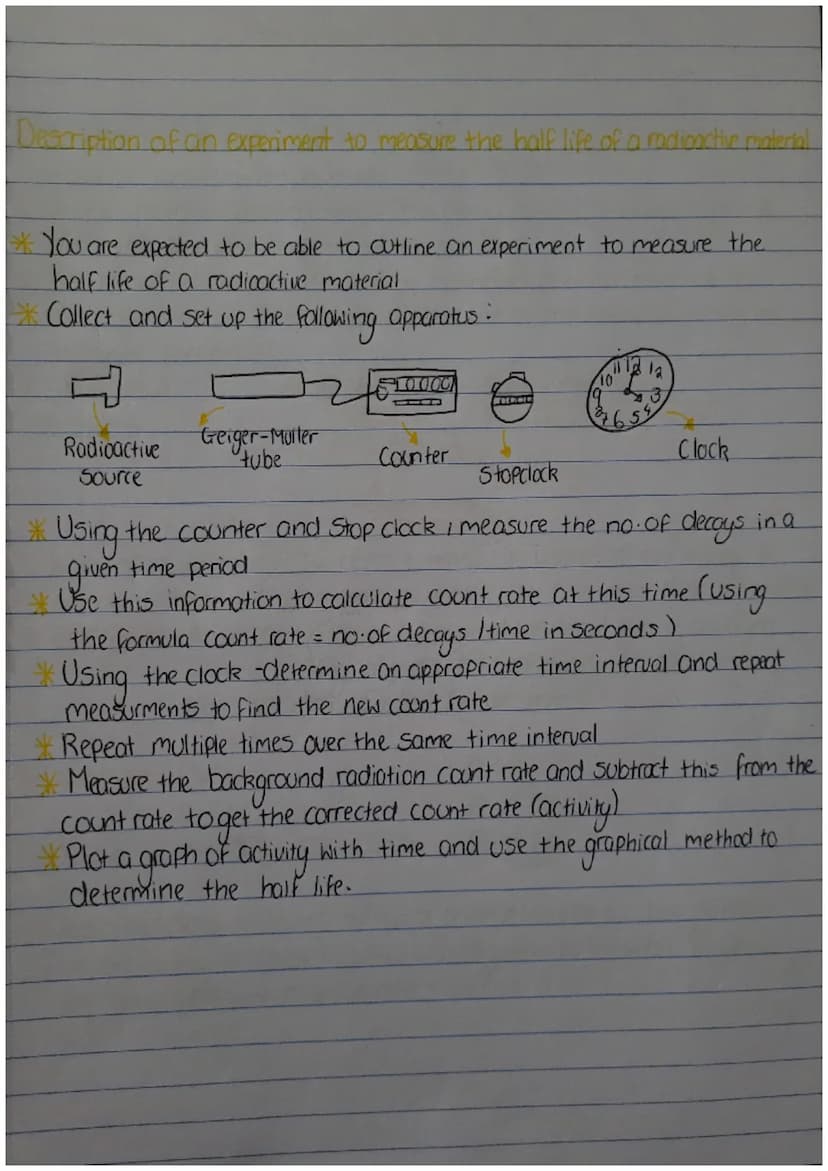 Description of an experiment to measure the half life of a radioactive material
* You are expected to be able to outline an experiment to measure the
half life of a radioactive material
* Collect and set up the following apparatus:
10 11 12 12 3 4 5 6 7 8 9
Radioactive
source
Geiger-Muller
tube
Counter
Stopclock
Clock
* Using the counter and stop clock, measure the no. of decays in a
given time period
* Use this information to calculate count rate at this time (using
the formula count rate = no. of decays / time in seconds)
* Using the clock - determine an appropriate time interval and repeat
measurments to find the new count rate
* Repeat multiple times over the same time interval
* Measure the background radiation count rate and subtract this from the
count rate to get the corrected count rate (activity)
* Plot a graph of activity with time and use the graphical method to
determine the half life.